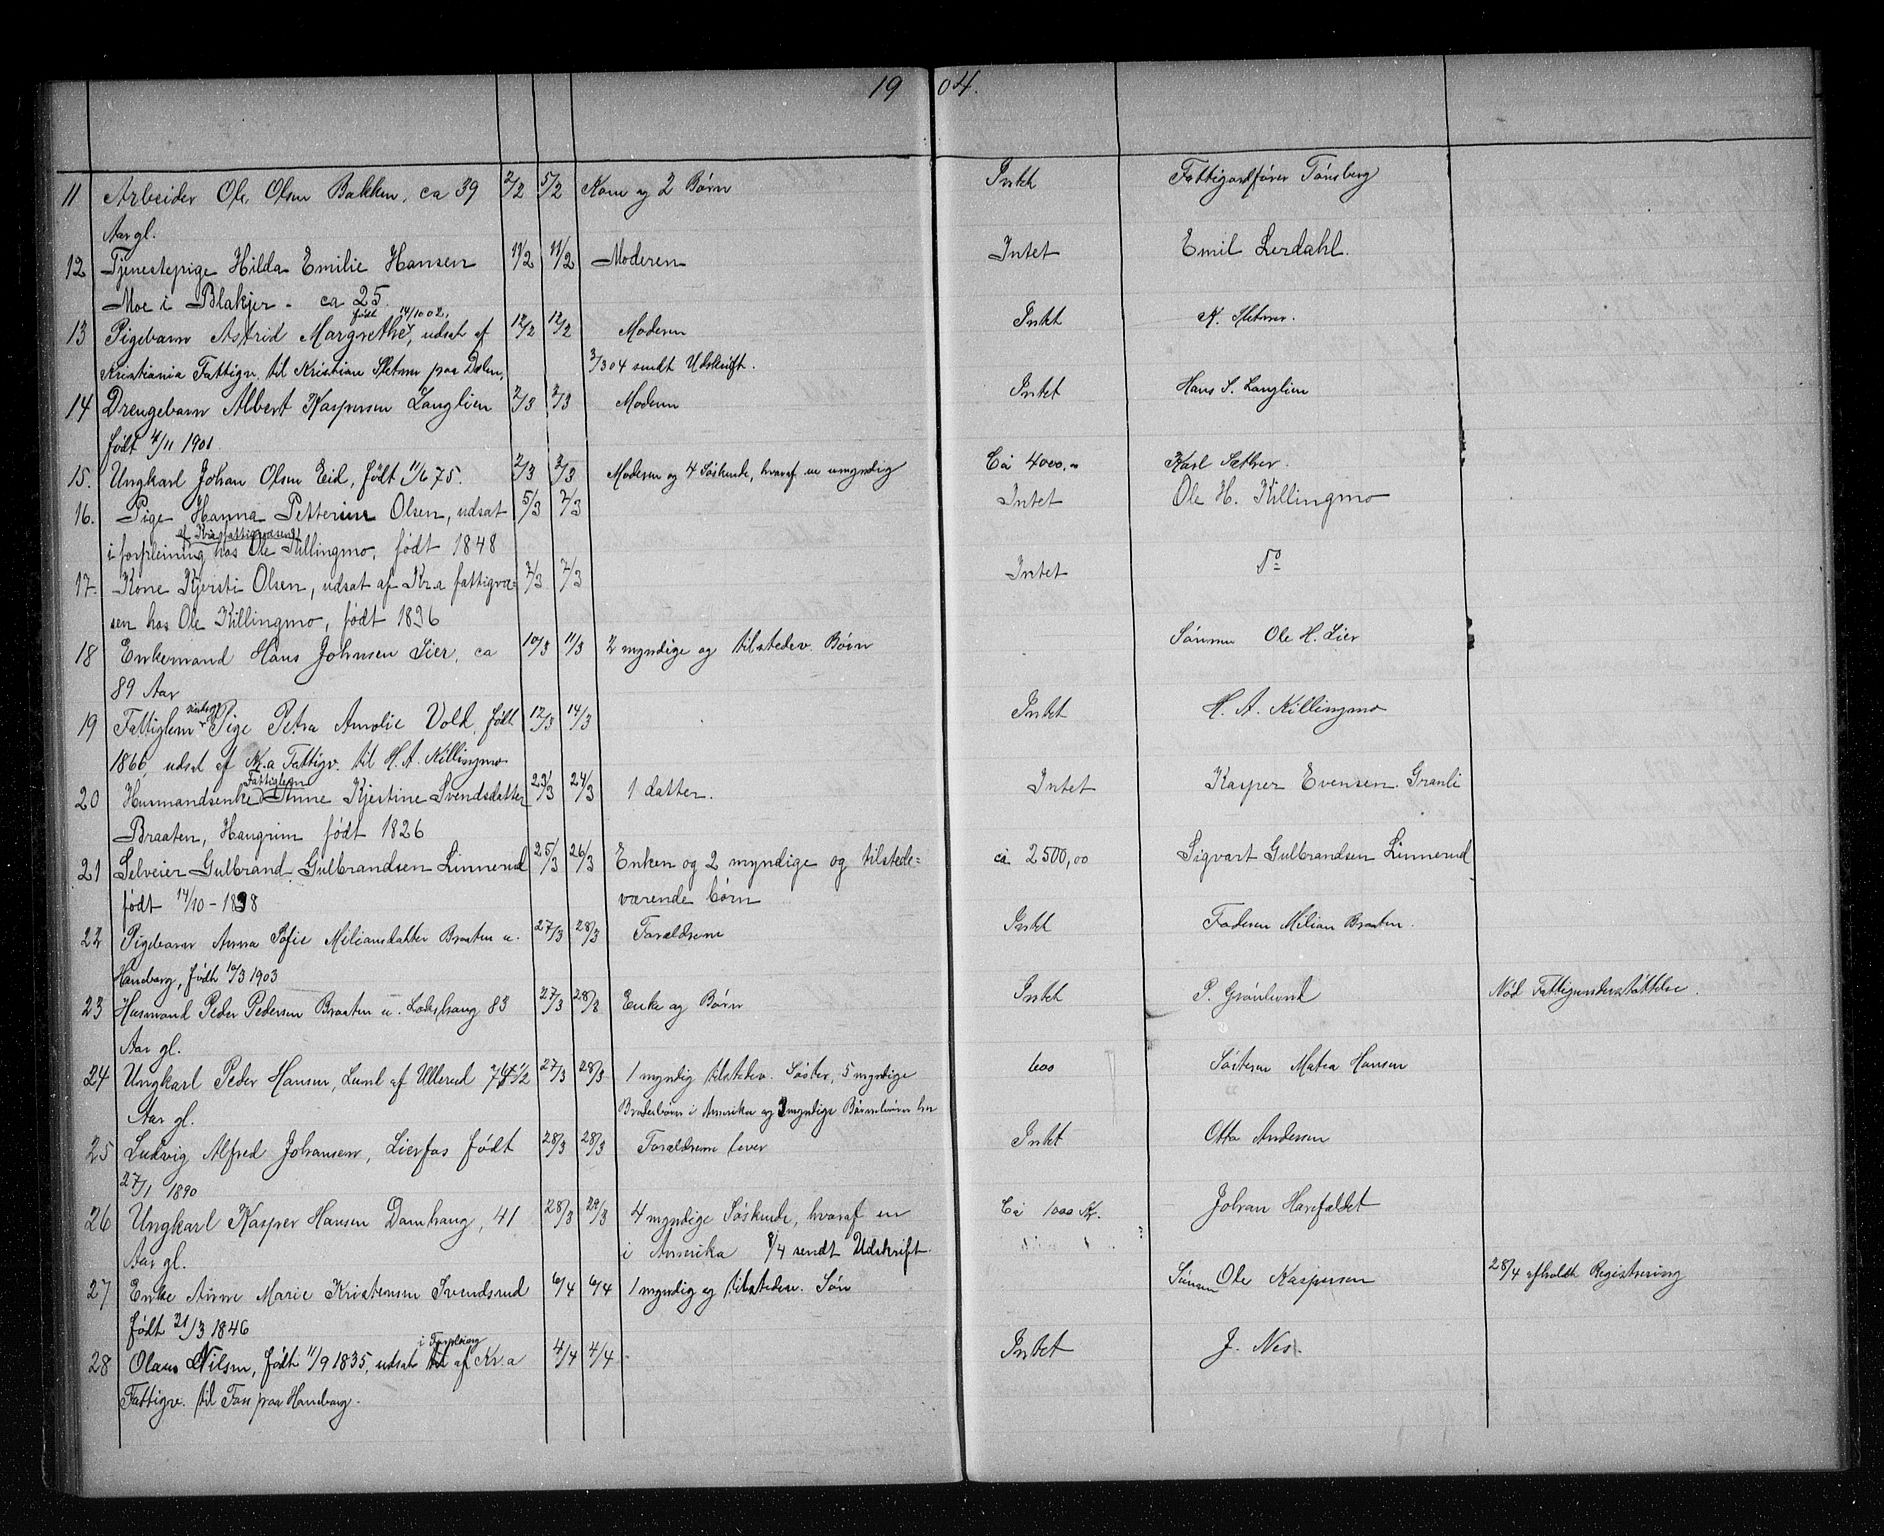 1904.
11 Arbeider Ole Olsen Bakken, ca 39 2/2 5/2 Kone og 2 Børn Intet Fattigaardfører Tønsberg
Aar gl.
12 Tjenestepige Hilda Emilie Hansen 11/2 11/2 Moderen Intet Emil Lerdahl.
Moe i Blakjer - ca 25.
født 14/10 02,
13 Pigebarn Astrid Margrethe, udsat af 12/2 12/2 Moderen Intet K. Sletner.
Kristiania Fattigv. til Kristian Sletner paa Dalen, 3/3 04 sendt Udskrift.
14 Drengebarn Albert Kaspersen Langlien 2/3 2/3 Moderen Intet Hans S. Langlien
født 4/11 1901
15. Ungkarl Johan Olsen Eid, født 11/6 75. 2/3 2/3 Moderen og 4 Søskende, hvoraf en umyndig Ca 4000,00 Karl Sæther.
16. Pige Hanna Pettersen Olsen, udsat 5/3 7/3 Intet Ole H. Killingmo
af Kra fattigvæsen
i forpleining hos Ole Killingmo, født 1848
17. Kone Kjersti Olsen, udsat af Kr.a fattigvæ- 7/3 7/3 Intet Do
sen hos Ole Killingmo, født 1836
18 Enkemand Hans Johnsen Lier, ca 10/3 11/3 2 myndige og tilstedev. Børn Sønnen Ole H. Lier
89 Aar
19 Fattiglem Pige Petra Amalie Volk, født 12/3 14/3 Intet H. A. Killingmo
1866, udsat af Kr.a Fattigv. til H. A. Killingmo
Fattiglem
20 Husmandsenke Anne Kjerstine Svendsdatter 23/3 24/3 1 datter. Intet Kasper Evensen Granli
Braaten, Hangrim født 1826
21 Selveier Gulbrand Gulbrandsen Linnerud 25/3 26/3 Enken og 2 myndige og tilstede= ca 2500,00 Sigvart Gulbrandsen Linnerud
født 14/10 - 1838 værende børn
22 Pigebarn Anna Sofie Miliansdatter Braaten u. 27/3 28/3 Forældrene Intet Faderen Milian Braaten.
Haneborg, født 10/3 1903
23 Husmand Peder Pedersen Braaten u. Lokshaug 83 27/3 28/3 Enke og Børn Intet P. Grønlund Nød Fattigunderstøttelse.
Aar gl.
24 Ungkarl Peder Hansen, Lund af Ullerud 1/2 27/3 28/3 1 myndig tilstedev. Søster, 5 myndige 600 Søsteren Matea Hansen
Aar gl. Broderbørn i Amerika og 3 myndige Børnebørn her
25 Ludvig Alfred Johansen, Lierfos født 28/3 28/3 Forældrene lever Intet Otto Andersen
27/1 1890
26 Ungkarl Kasper Hansen Damhaug, 41 28/3 29/3 4 myndige Søskende, hvoraf en Ca 1000 Kr. Johan Harefaldet
Aar gl. i Amerika 8/4 sendt Udskrift.
27 Enke Anne Marie Kristensen Svendsrud 6/4 6/4 1 myndig og tilstedev. Søn Sønnen Ole Kaspersen 28/4 afholdt Registrering
født 21/3 1846
i Forpleining
28 Olaus Nilsen, født 11/9 1835, udsat af Kr.a 4/4 4/4 Intet J. Nes.
Fattigv. til Foss paa Haneborg.